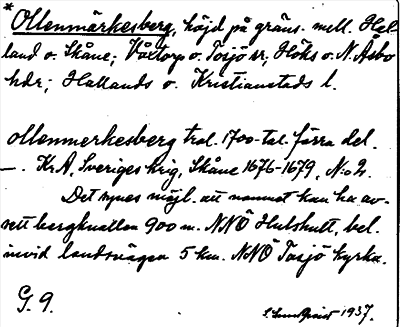 * Ollenmärkesberg, höjd på gräns. mell. Hal-
land o. Skåne; Våxtorp o. Tosjö sr, Höks o. N. Åsbo
hdr; Hallands o. Kristianstads l.
ollenmerkesberg trol. 1700-tal. förra del.
—. KrA, Sveriges krig, Skåne 1676-1679, N:o 2.
Det synes möjl. att namnet kan ha av-
sett bergknallen 900 m. NNÖ Hulshult, bel.
invid landsvägen 5 km. NNÖ Tosjö kyrka.
G. 9.
S. Lundqvist 1937.